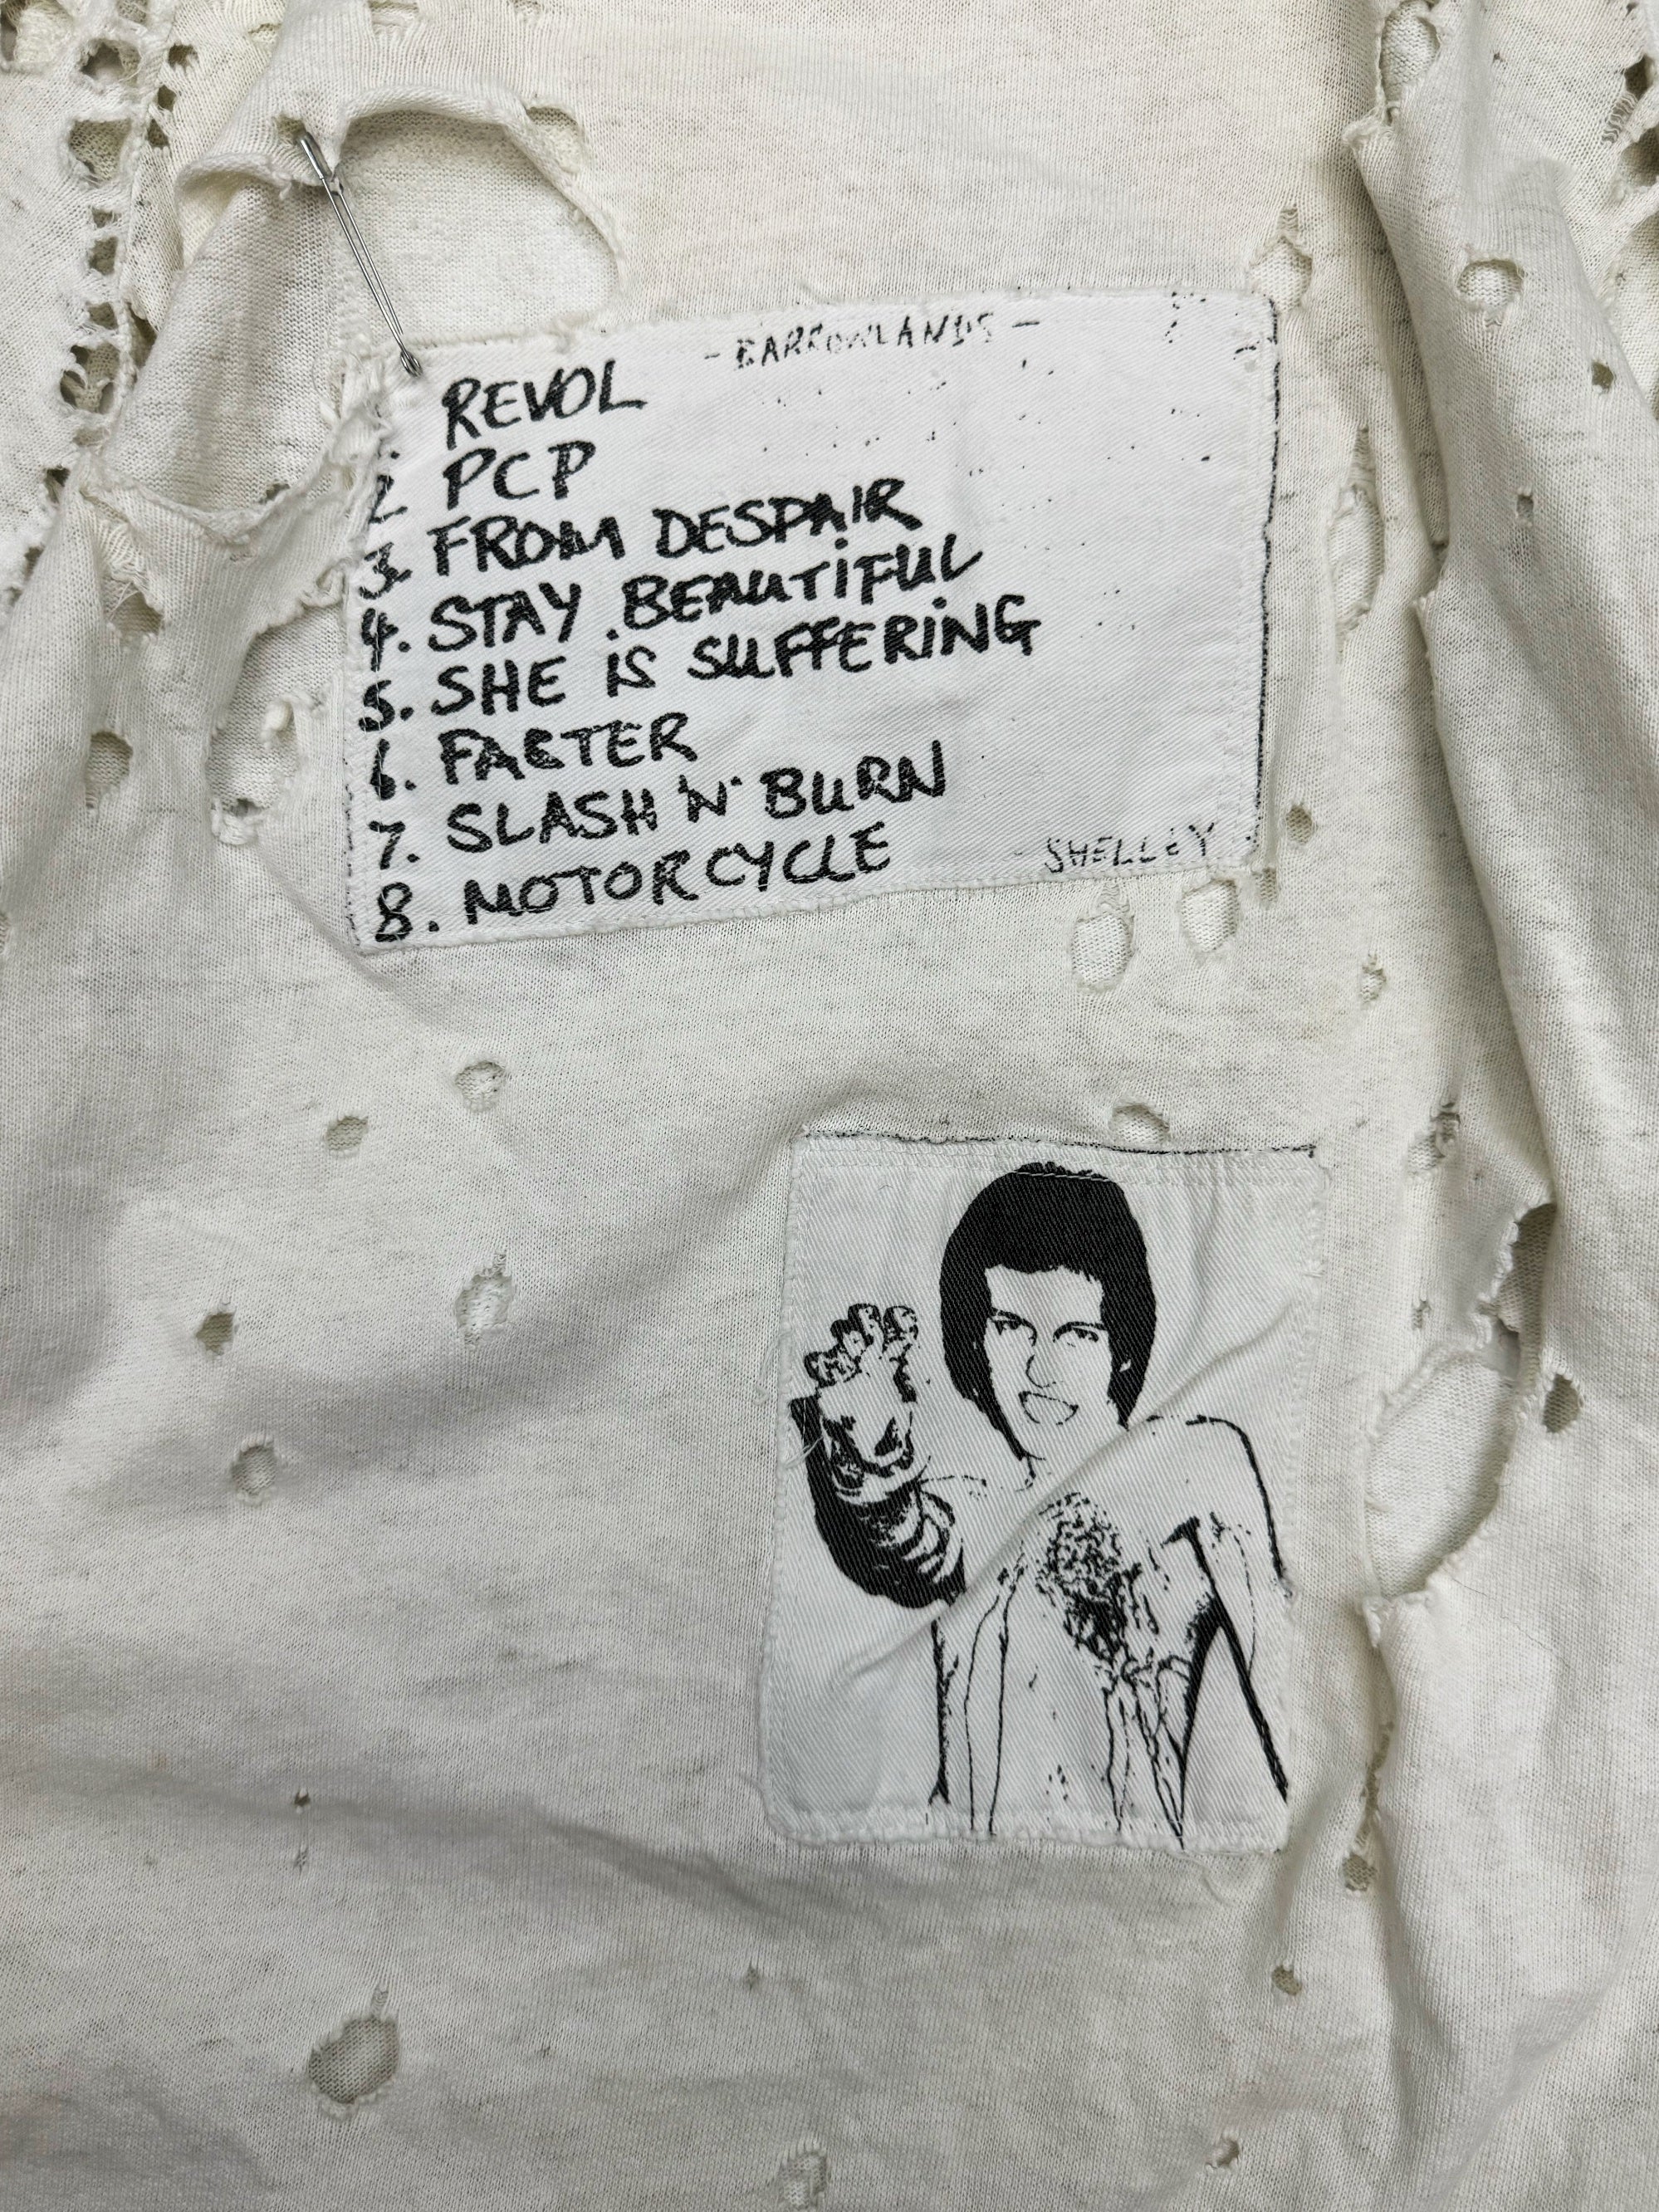 - BARROWLANDS -
1. REVOL
2 PCP
3. FROM DESPAIR
4. STAY BEAUTIFUL
5. SHE iS SUFFERiNG
6. FASTER
7. SLASH 'N' BURN
8. MOTORCYCLE
SHELLEY